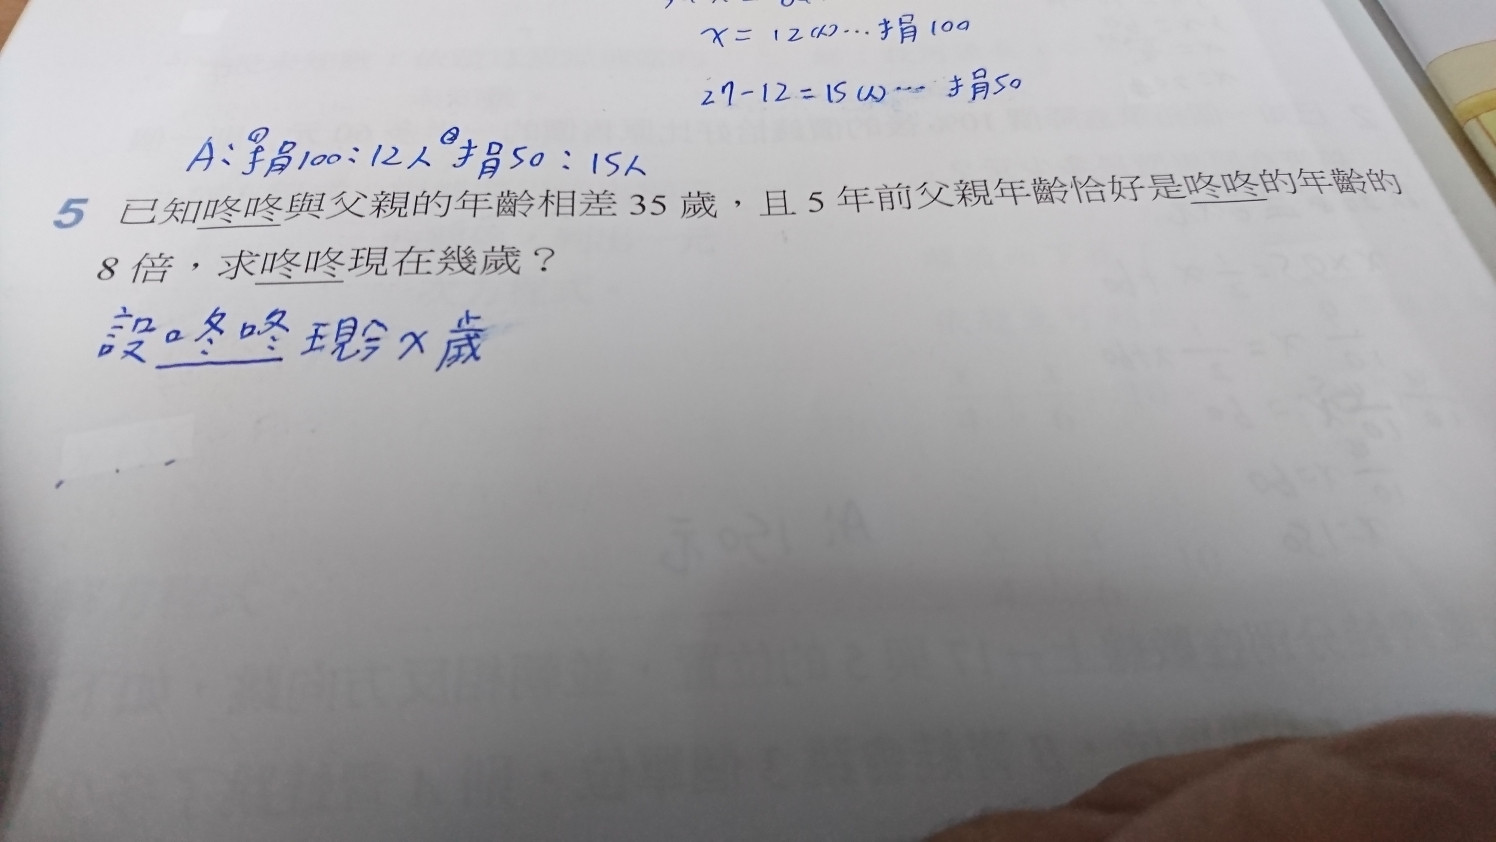 x = 12(人)…捐100
27-12=15(人)… 捐50
A:①捐100:12人 ②捐50:15人
5 已知咚咚與父親的年齡相差 35 歲，且 5 年前父親年齡恰好是咚咚的年齡的
8 倍，求咚咚現在幾歲？
設咚咚現今x歲